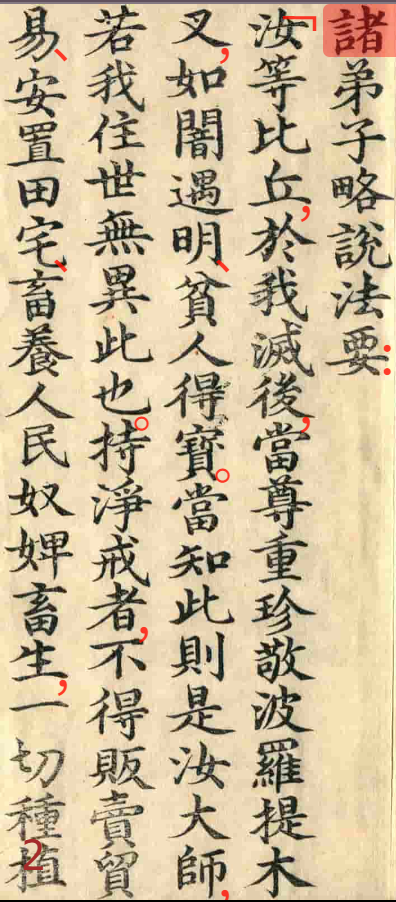 諸弟子略說法要：
「汝等比丘，於我滅後，當尊重珍敬波羅提木
叉，如闇遇明、貧人得寶。當知此則是汝大師，
若我住世無異此也。持淨戒者，不得販賣貿
易、安置田宅、畜養人民奴婢畜生，一切種植
2